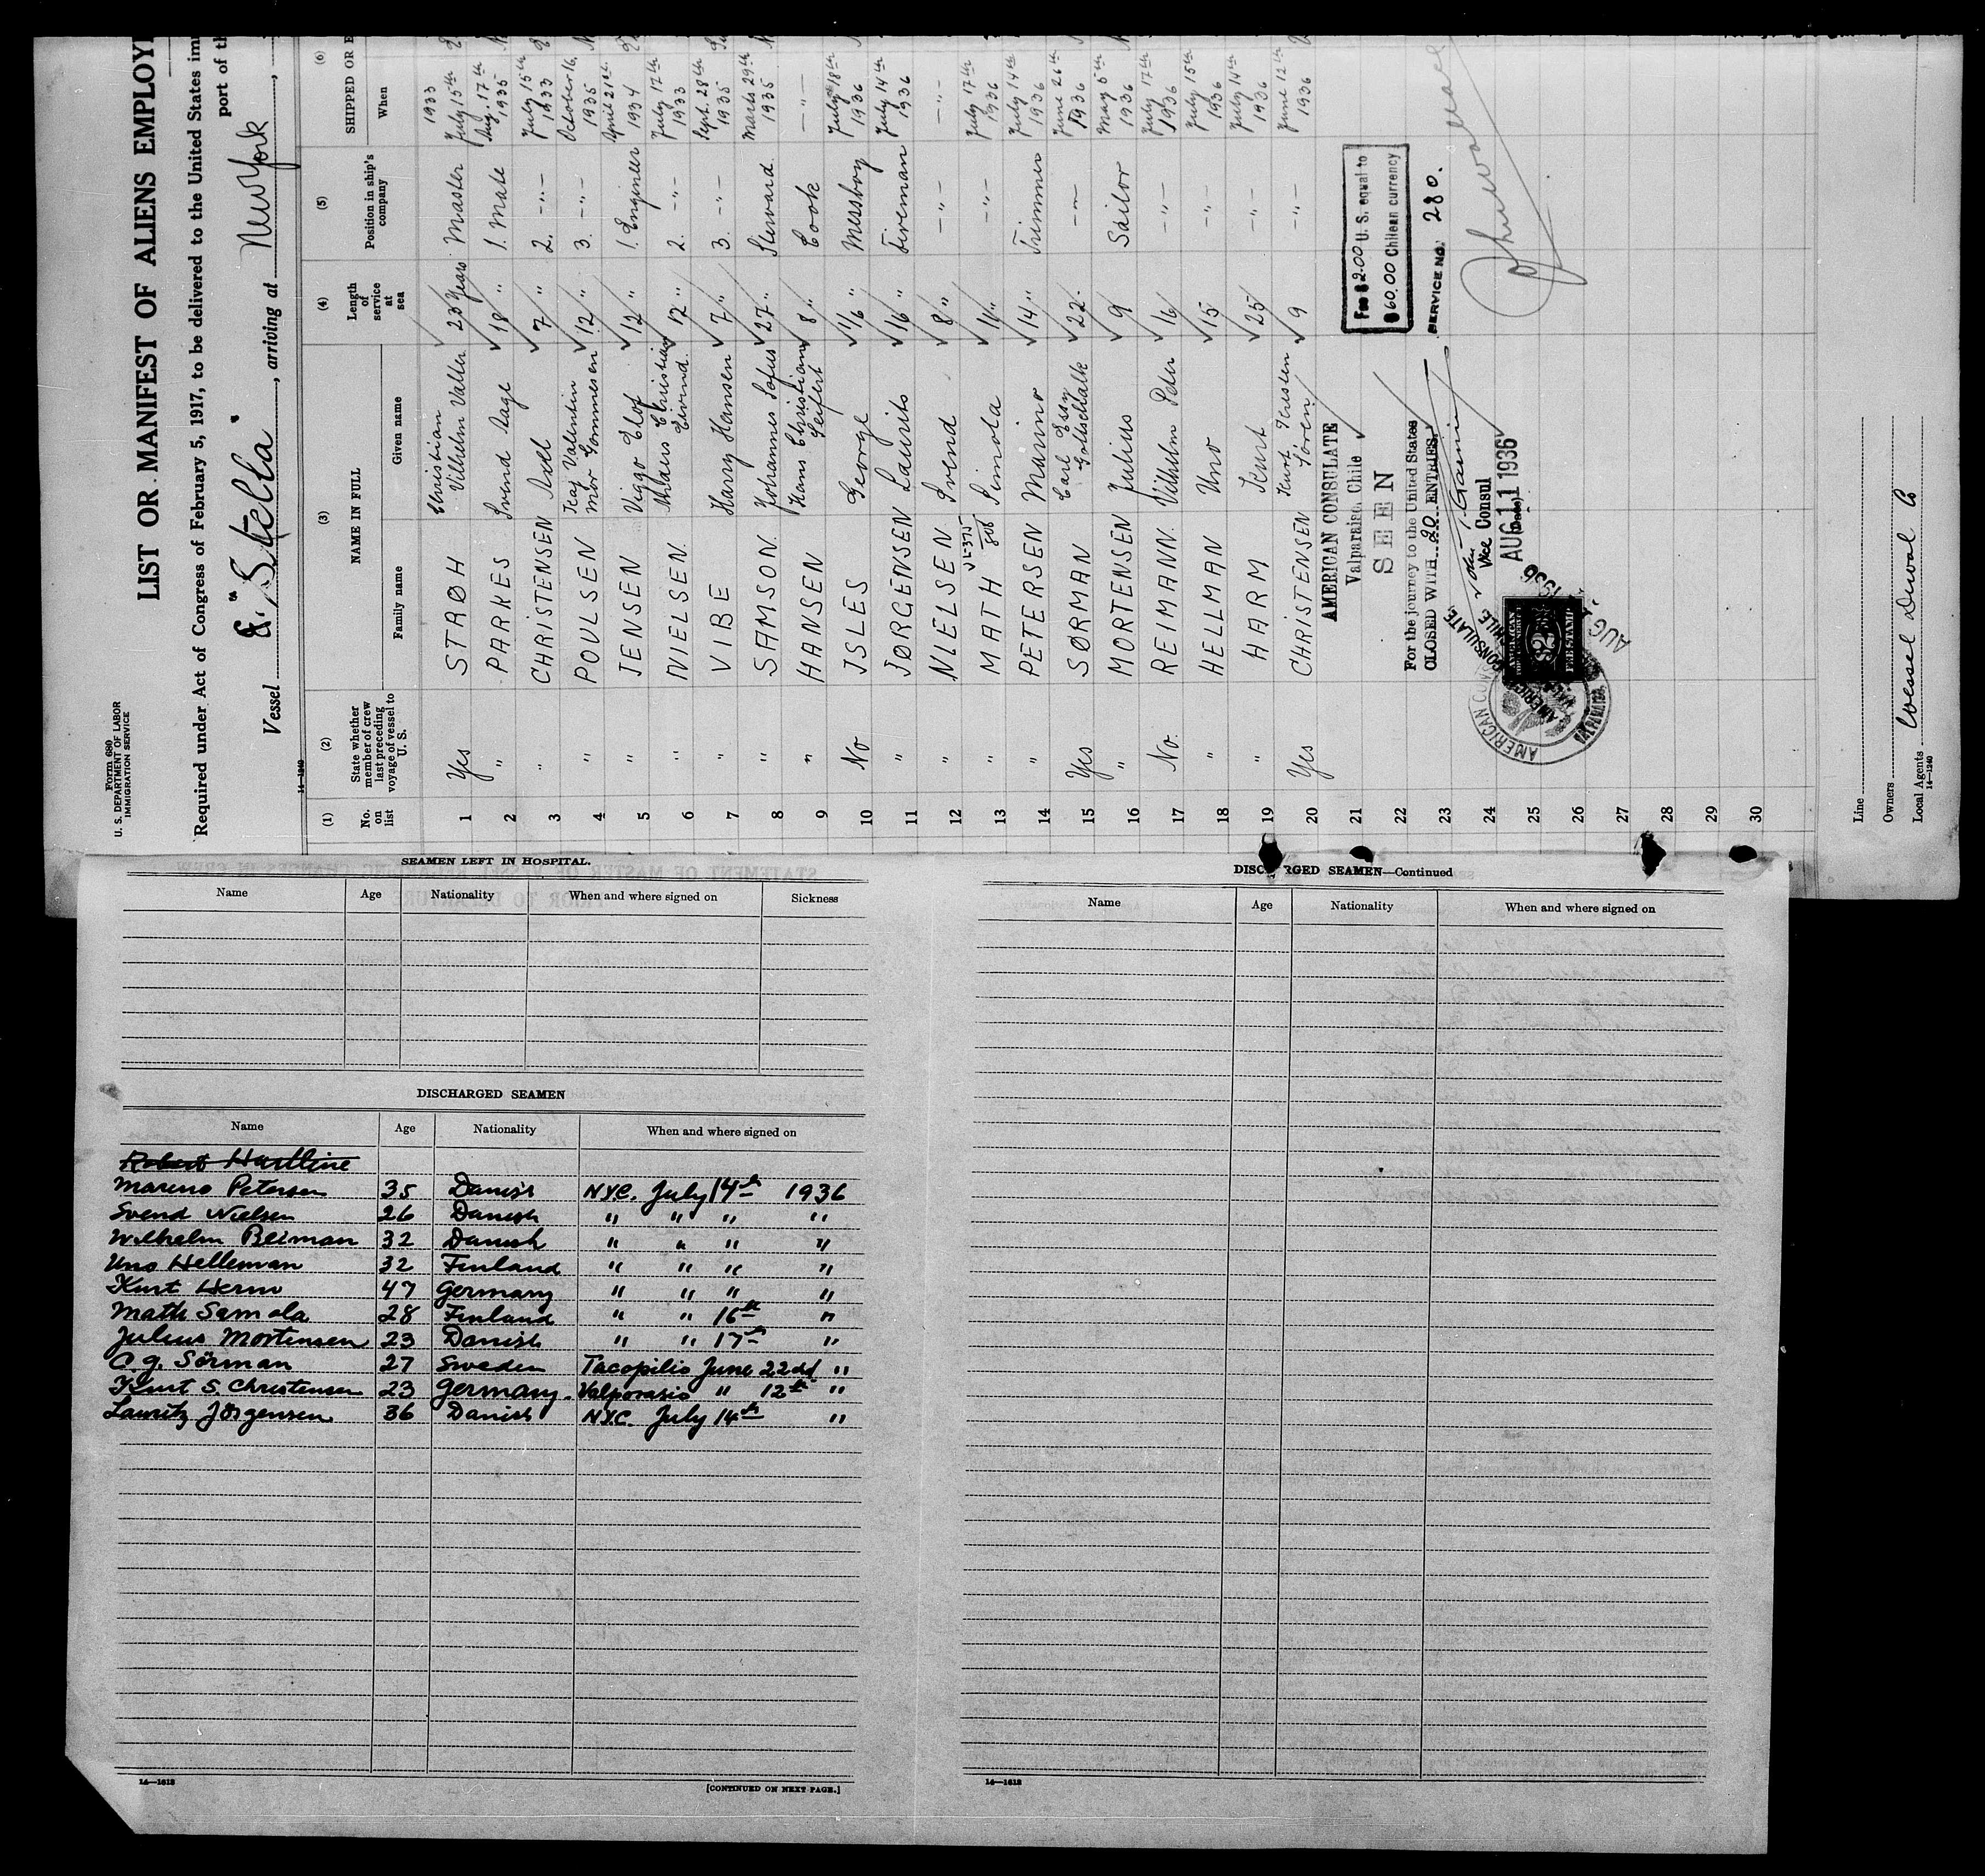 Form 680
U. S. DEPARTMENT OF LABOR
IMMIGRATION SERVICE
LIST OR MANIFEST OF ALIENS EMPLOY
Required under Act of Congress of February 5, 1917, to be delivered to the United States imm
port of th
Vessel "Stella", arriving at New York
14—1240
(1) (2) (3) (4) (5) (6)
No. on list
State whether member of crew last preceding voyage of vessel to U. S.
NAME IN FULL
Family name Given name
Length of service at sea
Position in ship's company
SHIPPED OR E
When
1 Yes STRØH Christian Vilhelm Valter 23 Years Master 1933 July 15th
2 " PARKES Svend Aage 18 " 1. Mate Aug. 17th 1935
3 " CHRISTENSEN Axel 7 " 2. -"- July 15th 1933
4 " POULSEN Valentin 12 " 3. -"- October 16. 1935
5 " JENSEN Viggo Elof 12 " 1. Engineer April 21st. 1934
6 " NIELSEN Christian Eivind. 12 " 2. -"- July 17th 1933
7 " VIBE Harry Hansen 7 " 3. -"- Sept. 28th 1935
8 " SAMSON. Johannes Sofus 27 " Steward. March 29th 1935
9 " HANSEN Hans Christian Seifert 8 " Cook -"-
10 No ISLES George 1/6 " Messboy July 18th 1936
11 " JØRGENSEN Laurits 16 " Fireman July 14th 1936
12 " NIELSEN Svend 8 " -"- -"-
13 " MATH Simola 11 " -"- July 17th 1936
14 " PETERSEN Marino 14 " Trimmer July 14th 1936
15 Yes SØRMAN Carl Gottschalk 22 " -"- June 26th 1936
16 " MORTENSEN Julius 9 Sailor May 5th 1936
17 No. REIMANN. Vilhelm Peter 16 -"- July 17th 1936
18 " HELLMAN Uno 15 -"- July 15th 1936
19 " HARM Kurt 25 -"- July 14th 1936
20 Yes CHRISTENSEN Kurt Kresten Sören 9 -"- June 12th 1936
21
22
23
24
25
26
27
28
29
30
AMERICAN CONSULATE
Valparaiso, Chile
SEEN
For the journey to the United States
CLOSED WITH 20 ENTRIES.
Vice Consul
AUG 11 1936
(Date)
Fee $2.00 U. S. equal to
$60.00 Chilean currency
SERVICE NO. 280.
AMERICAN CONSULATE,
FEE STAMP
Line
Owners
Local Agents Wessel Duval Co
14—1240
SEAMEN LEFT IN HOSPITAL.
Name Age Nationality When and where signed on Sickness
DISCHARGED SEAMEN
Name Age Nationality When and where signed on
Robert Hartline
Mareno Petersen 35 Danish NYC. July 14th 1936
Svend Nielsen 26 Danish " " " "
Wilhelm Reiman 32 Danish " " " "
Uno Helleman 32 Finland " " " "
Kurt Herm 47 Germany " " " "
Math Semola 28 Finland " " 16th "
Julius Mortensen 23 Danish " " 17th "
C. G. Sörman 27 Sweden Tacopilio June 22nd "
Kurt S. Christensen 23 Germany. Valporasio " 12th "
Lauritz Jörgensen 36 Danish NYC. July 14th "
14—1613
[CONTINUED ON NEXT PAGE.]
DISCHARGED SEAMEN—Continued
Name Age Nationality When and where signed on
14—1613